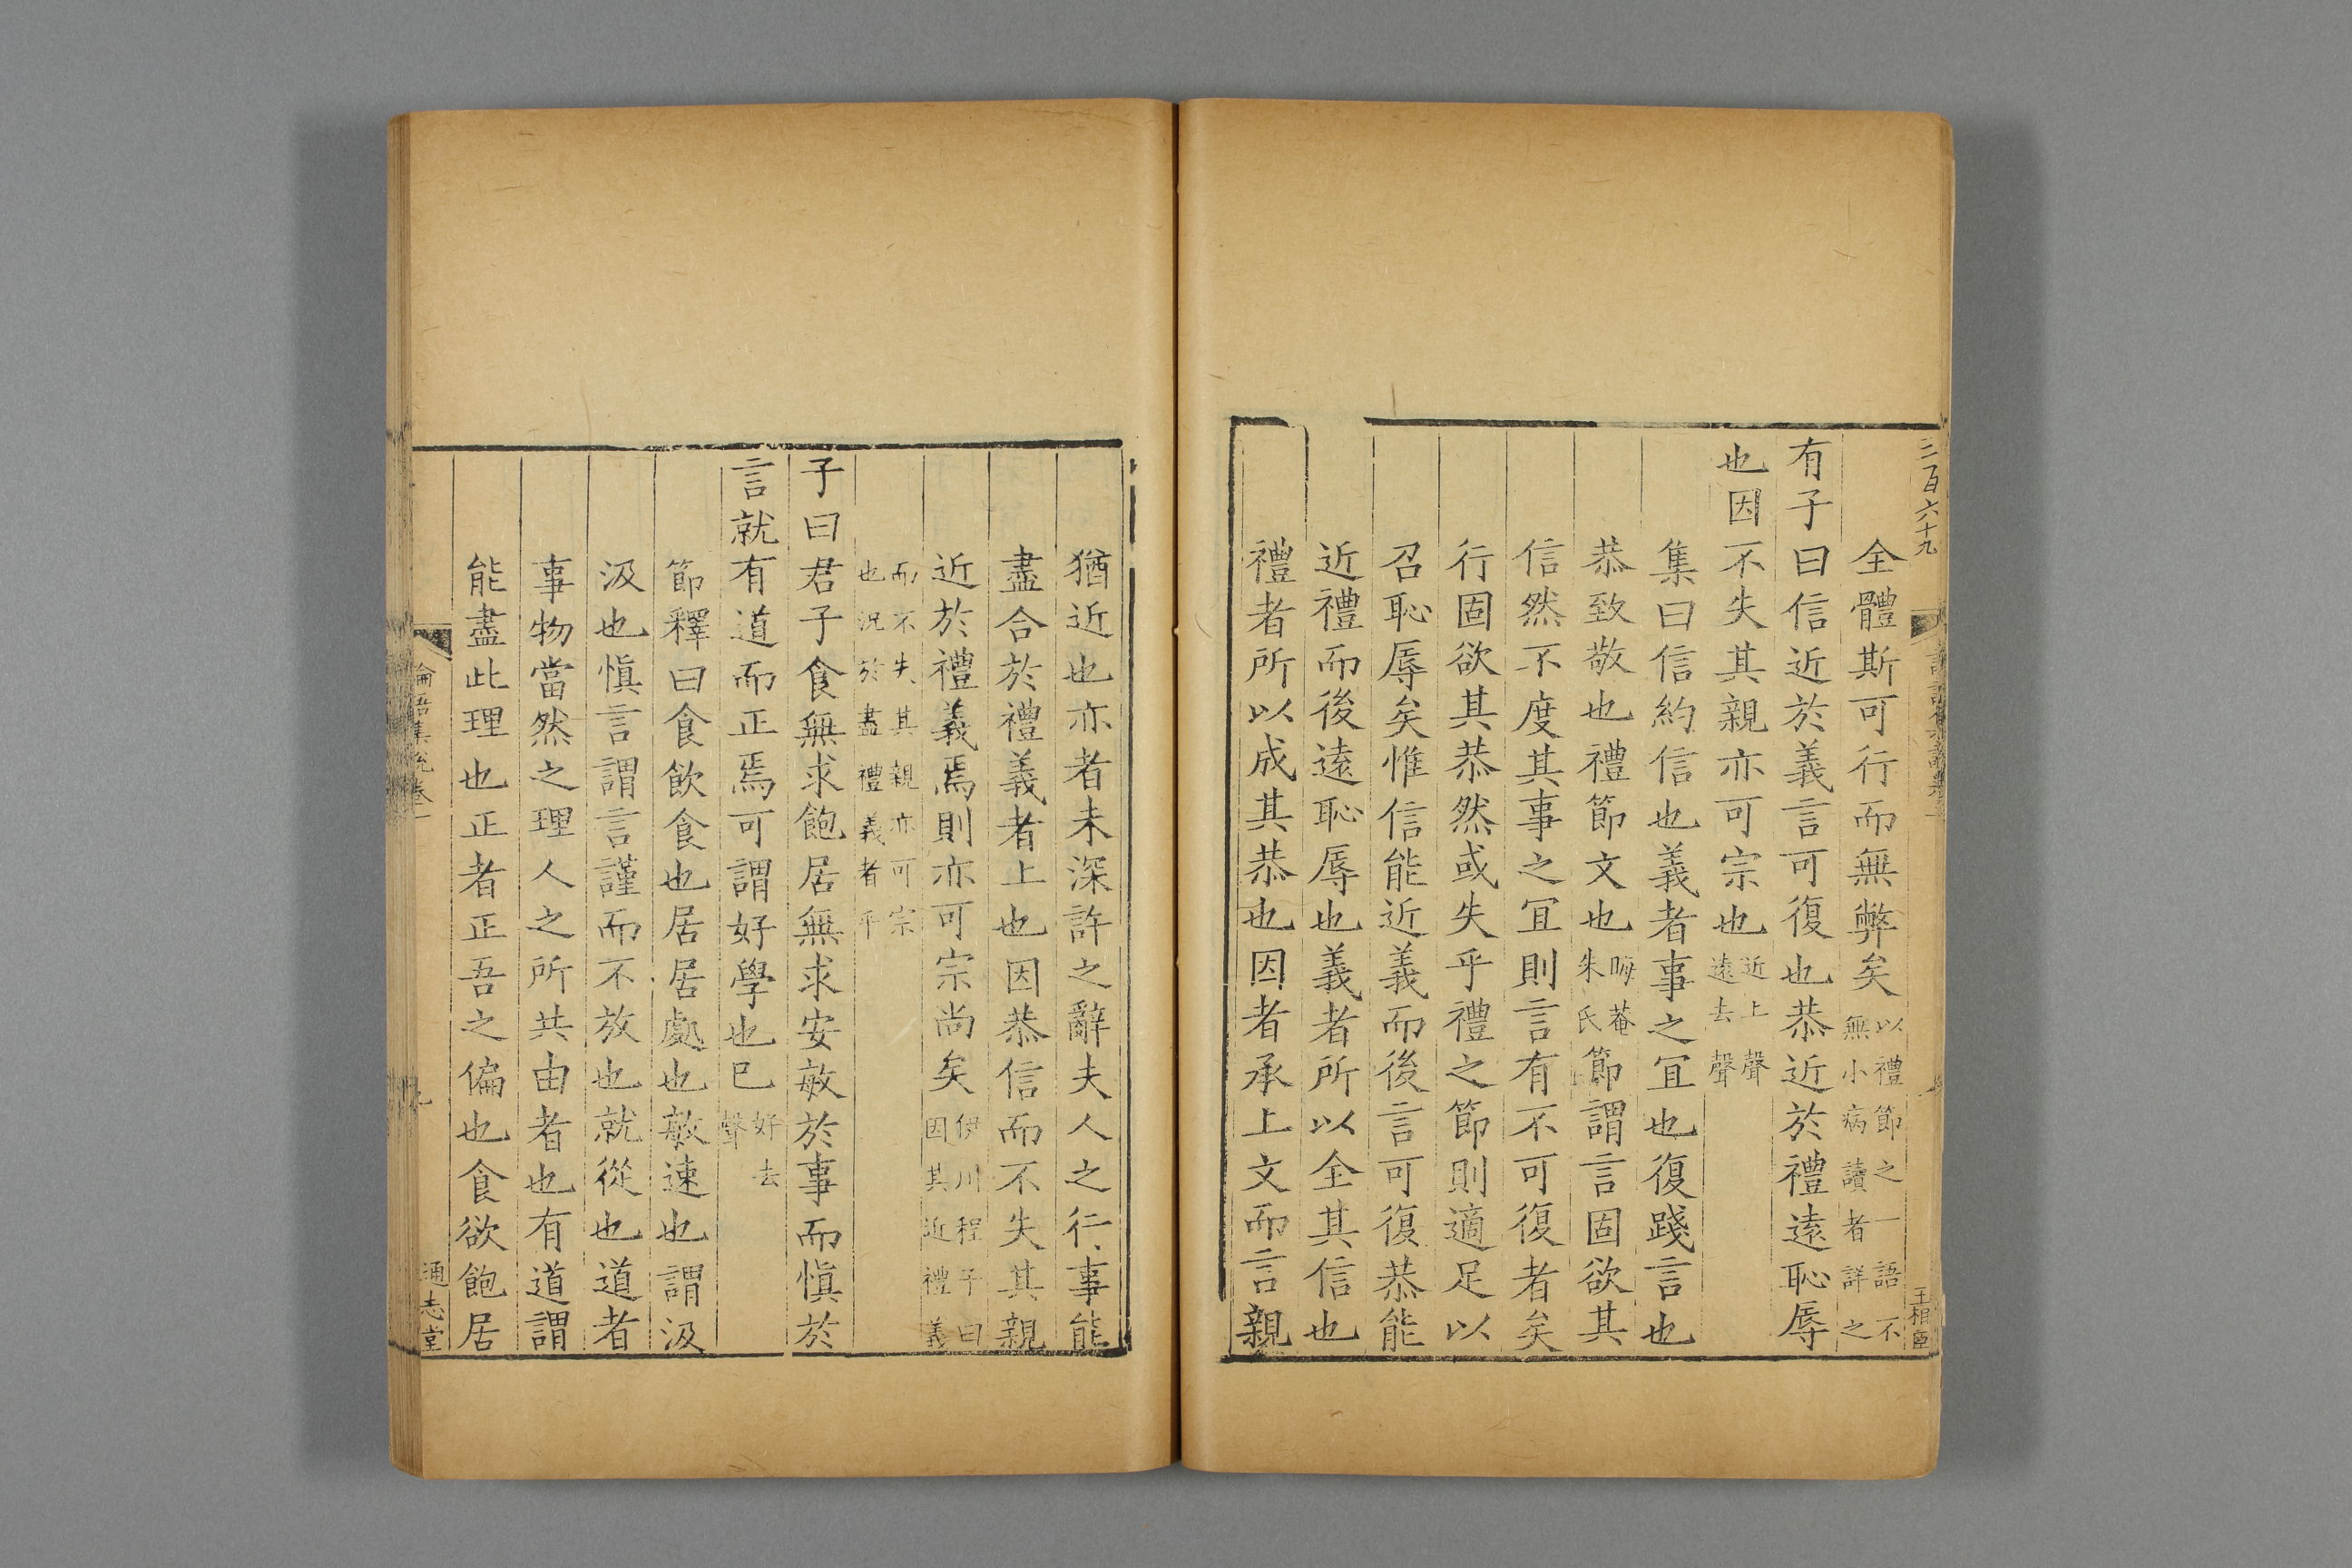 三百六十九
王相臣
全體斯可行而無弊矣以禮節之一語不無小病讀者詳之
有子曰信近於義言可復也恭近於禮遠恥辱
也因不失其親亦可宗也近上聲遠去聲
集曰信約信也義者事之宜也復踐言也
恭致敬也禮節文也晦菴朱氏節謂言固欲其
信然不度其事之宜則言有不可復者矣
行固欲其恭然或失乎禮之節則適足以
召恥辱矣惟信能近義而後言可復恭能
近禮而後遠恥辱也義者所以全其信也
禮者所以成其恭也因者承上文而言親
猶近也亦者未深許之辭夫人之行事能
盡合於禮義者上也因恭信而不失其親
近於禮義焉則亦可宗尚矣伊川程子曰因其近禮義
而不失其親亦可宗也況於盡禮義者乎
子曰君子食無求飽居無求安敏於事而慎於
言就有道而正焉可謂好學也已好去聲
節釋曰食飲食也居居處也敏速也謂汲
汲也慎言謂言謹而不放也就從也道者
事物當然之理人之所共由者也有道謂
能盡此理也正者正吾之偏也食欲飽居
論語集說卷一
九
通志堂